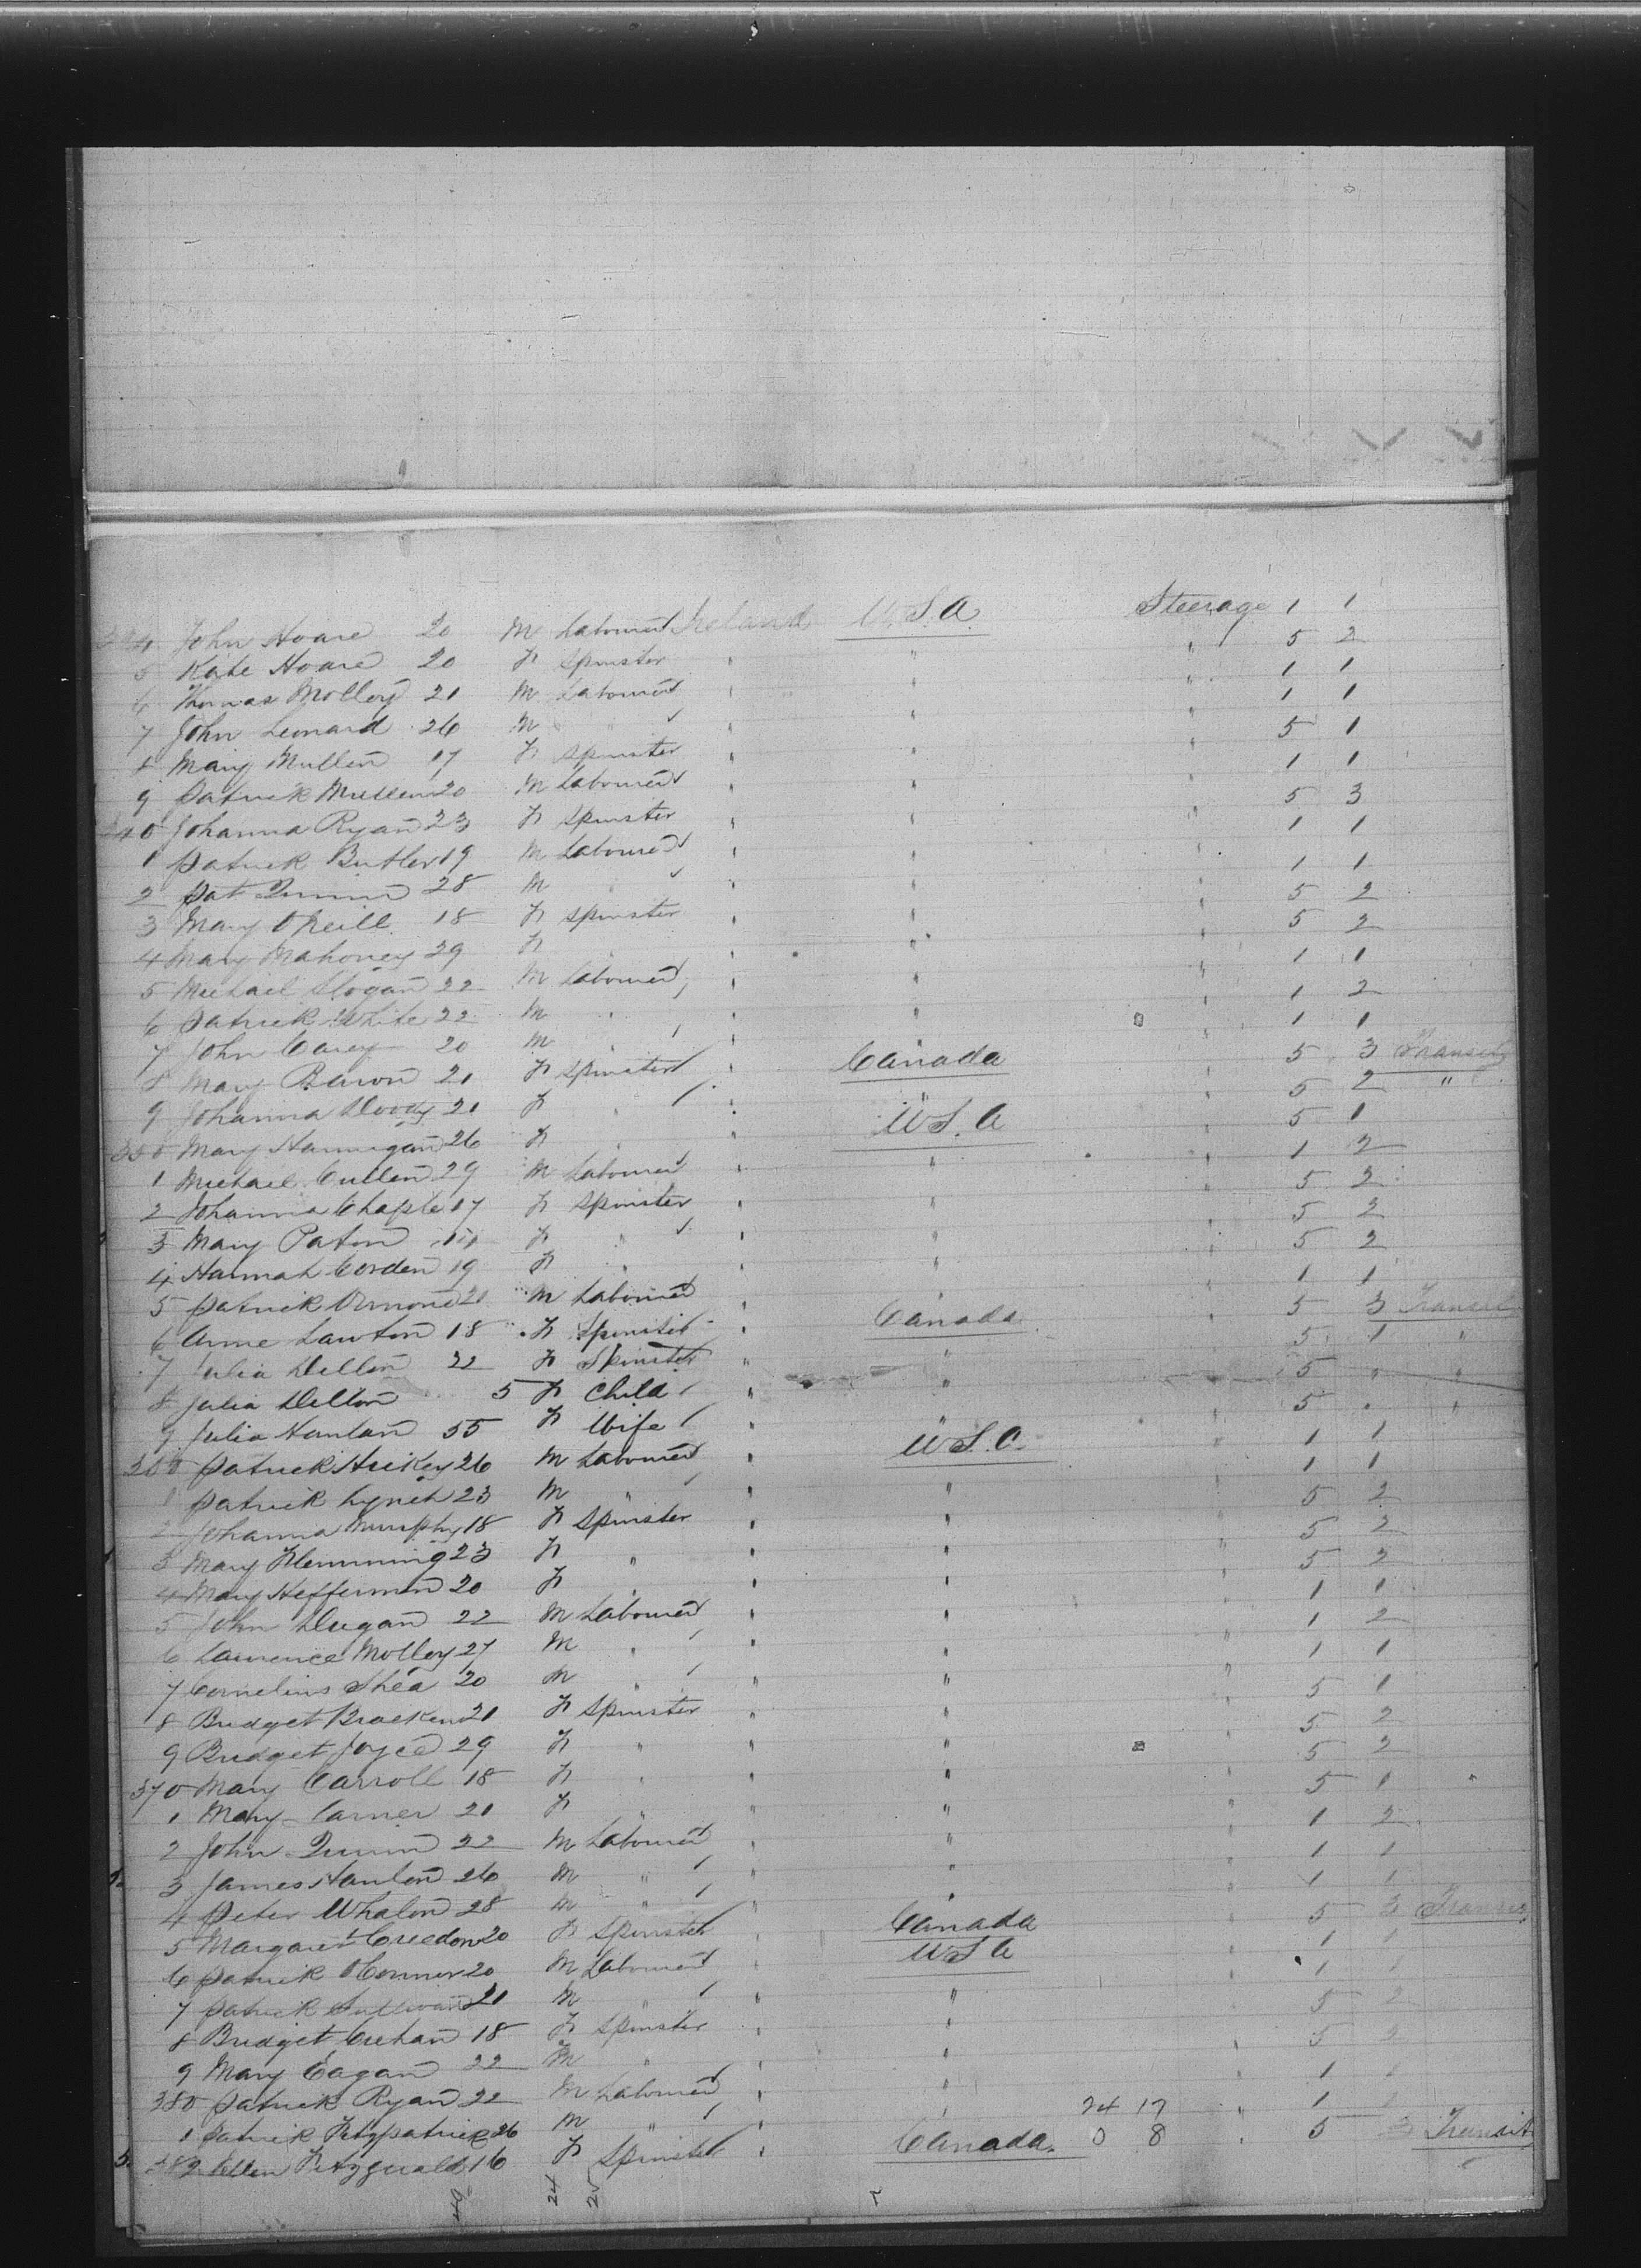 4 John Hoare 20 M Labourer Ireland U.S.A. Steerage 1 1
5 Kate Hoare 20 F Spinster " " " 5 2
6 Thomas Molloy 21 M Labourer " " " 1 1
7 John Leonard 26 M " " " 1 1
8 Mary Mullen 17 F Spinster " " " 5 1
9 Patrick Mullen 20 M Labourer " " " 1 1
340 Johanna Ryan 23 F Spinster " " " 5 3
1 Patrick Butler 19 M Labourer " " " 1 1
2 Pat Quinn 28 M " " " " 1 1
3 Mary O'Neill 18 F Spinster " " " 5 2
4 Mary Mahoney 29 F " " " 5 2
5 Michael Hogan 22 M Labourer " " " 1 1
6 Patrick White 22 M " " " " 1 2
7 John Carey 20 M " " " " 1 1
8 Mary Baron 21 F Spinster " Canada " 5 3 Transit
9 Johanna Doody 21 F " " " " 5 2 "
350 Mary Hannigan 26 F " " U.S.A " 5 1
1 Michael Cullen 29 M Labourer " " " 1 2
2 Johanna Chaple 17 F Spinster " " " 5 2
3 Mary Paton F " " " " 5 2
4 Hannah Corden 19 F " " " " 5 2
5 Patrick Ormond 20 M Labourer " " " 1 1
6 Anne Lawton 18 F Spinster " Canada " 5 3 Transit
7 Julia Dillon 22 F Spinster " " 5 1 "
8 Julia Dillon 5 F Child " " 5 " "
9 Julia Hanlan 55 F Wife " " 5 " "
360 Patrick Hickey 26 M Labourer " U.S.A. " 1 1
1 Patrick Lynch 23 M " " " " 1 1
2 Johanna Murphy 18 F Spinster " " " 5 2
3 Mary Flemming 23 F " " " " 5 2
4 Mary Heffernan 20 F " " " " 5 2
5 John Dugan 22 M Labourer " " " 1 1
6 Laurence Molloy 27 M " " " " 1 2
7 Cornelius Shea 20 M " " " " 1 1
8 Bridget Bracken 21 F Spinster " " " 5 1
9 Bridget Joyce 29 F " " " " 5 2
370 Mary Carroll 18 F " " " " 5 2
1 Mary Carner 21 F " " " " 5 1
2 John Quinn 22 M Labourer " " " 1 2
3 James Hanlon 26 M " " " " 1 1
4 Peter Whalen 28 M " " " " 1 1
5 Margaret Creedon 20 F Spinster " Canada " 5 3 Transit
6 Patrick O'Connor 20 M Labourer " U.S.A " 1 1
7 Patrick Sullivan 21 M " " " " 1 1
8 Bridget Crehan 18 F Spinster " " 5 2
9 Mary Eagan 22 M " " " 5 2
380 Patrick Ryan 22 M Labourer " " " 1 1
1 Patrick Fitzpatrick 26 M " " " 24 17 " 1 1
382 Ellen Fitzgerald 16 F Spinster " Canada. 0 8 " 5 3 Transit
49 24 25